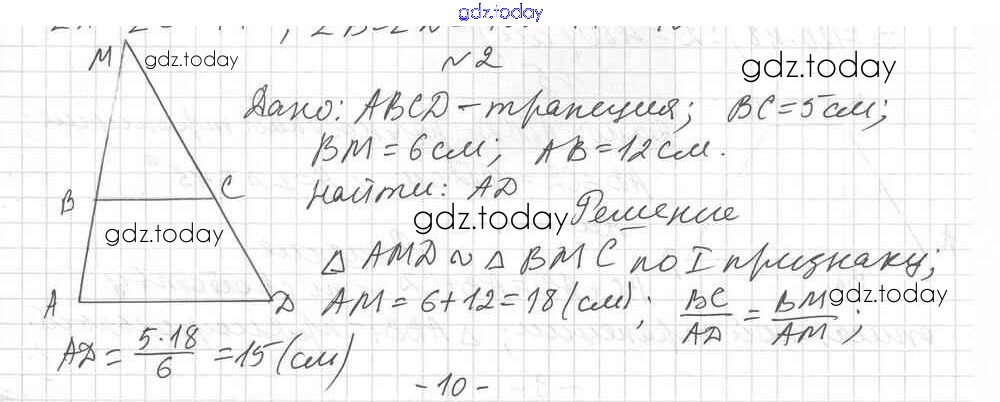 gdz.today
№2
gdz.today
gdz.today
M
Дано: ABCD – трапеция; BC = 5 см;
BM = 6 см; AB = 12 см.
Найти: AD
B
C
gdz.today
Решение
gdz.today
△ AMD ~ △ BMC по I признаку;
A
D
AM = 6 + 12 = 18 (см); BC/AD = BM/AM;
gdz.today
AD = 5·18/6 = 15 (см)
- 10 -